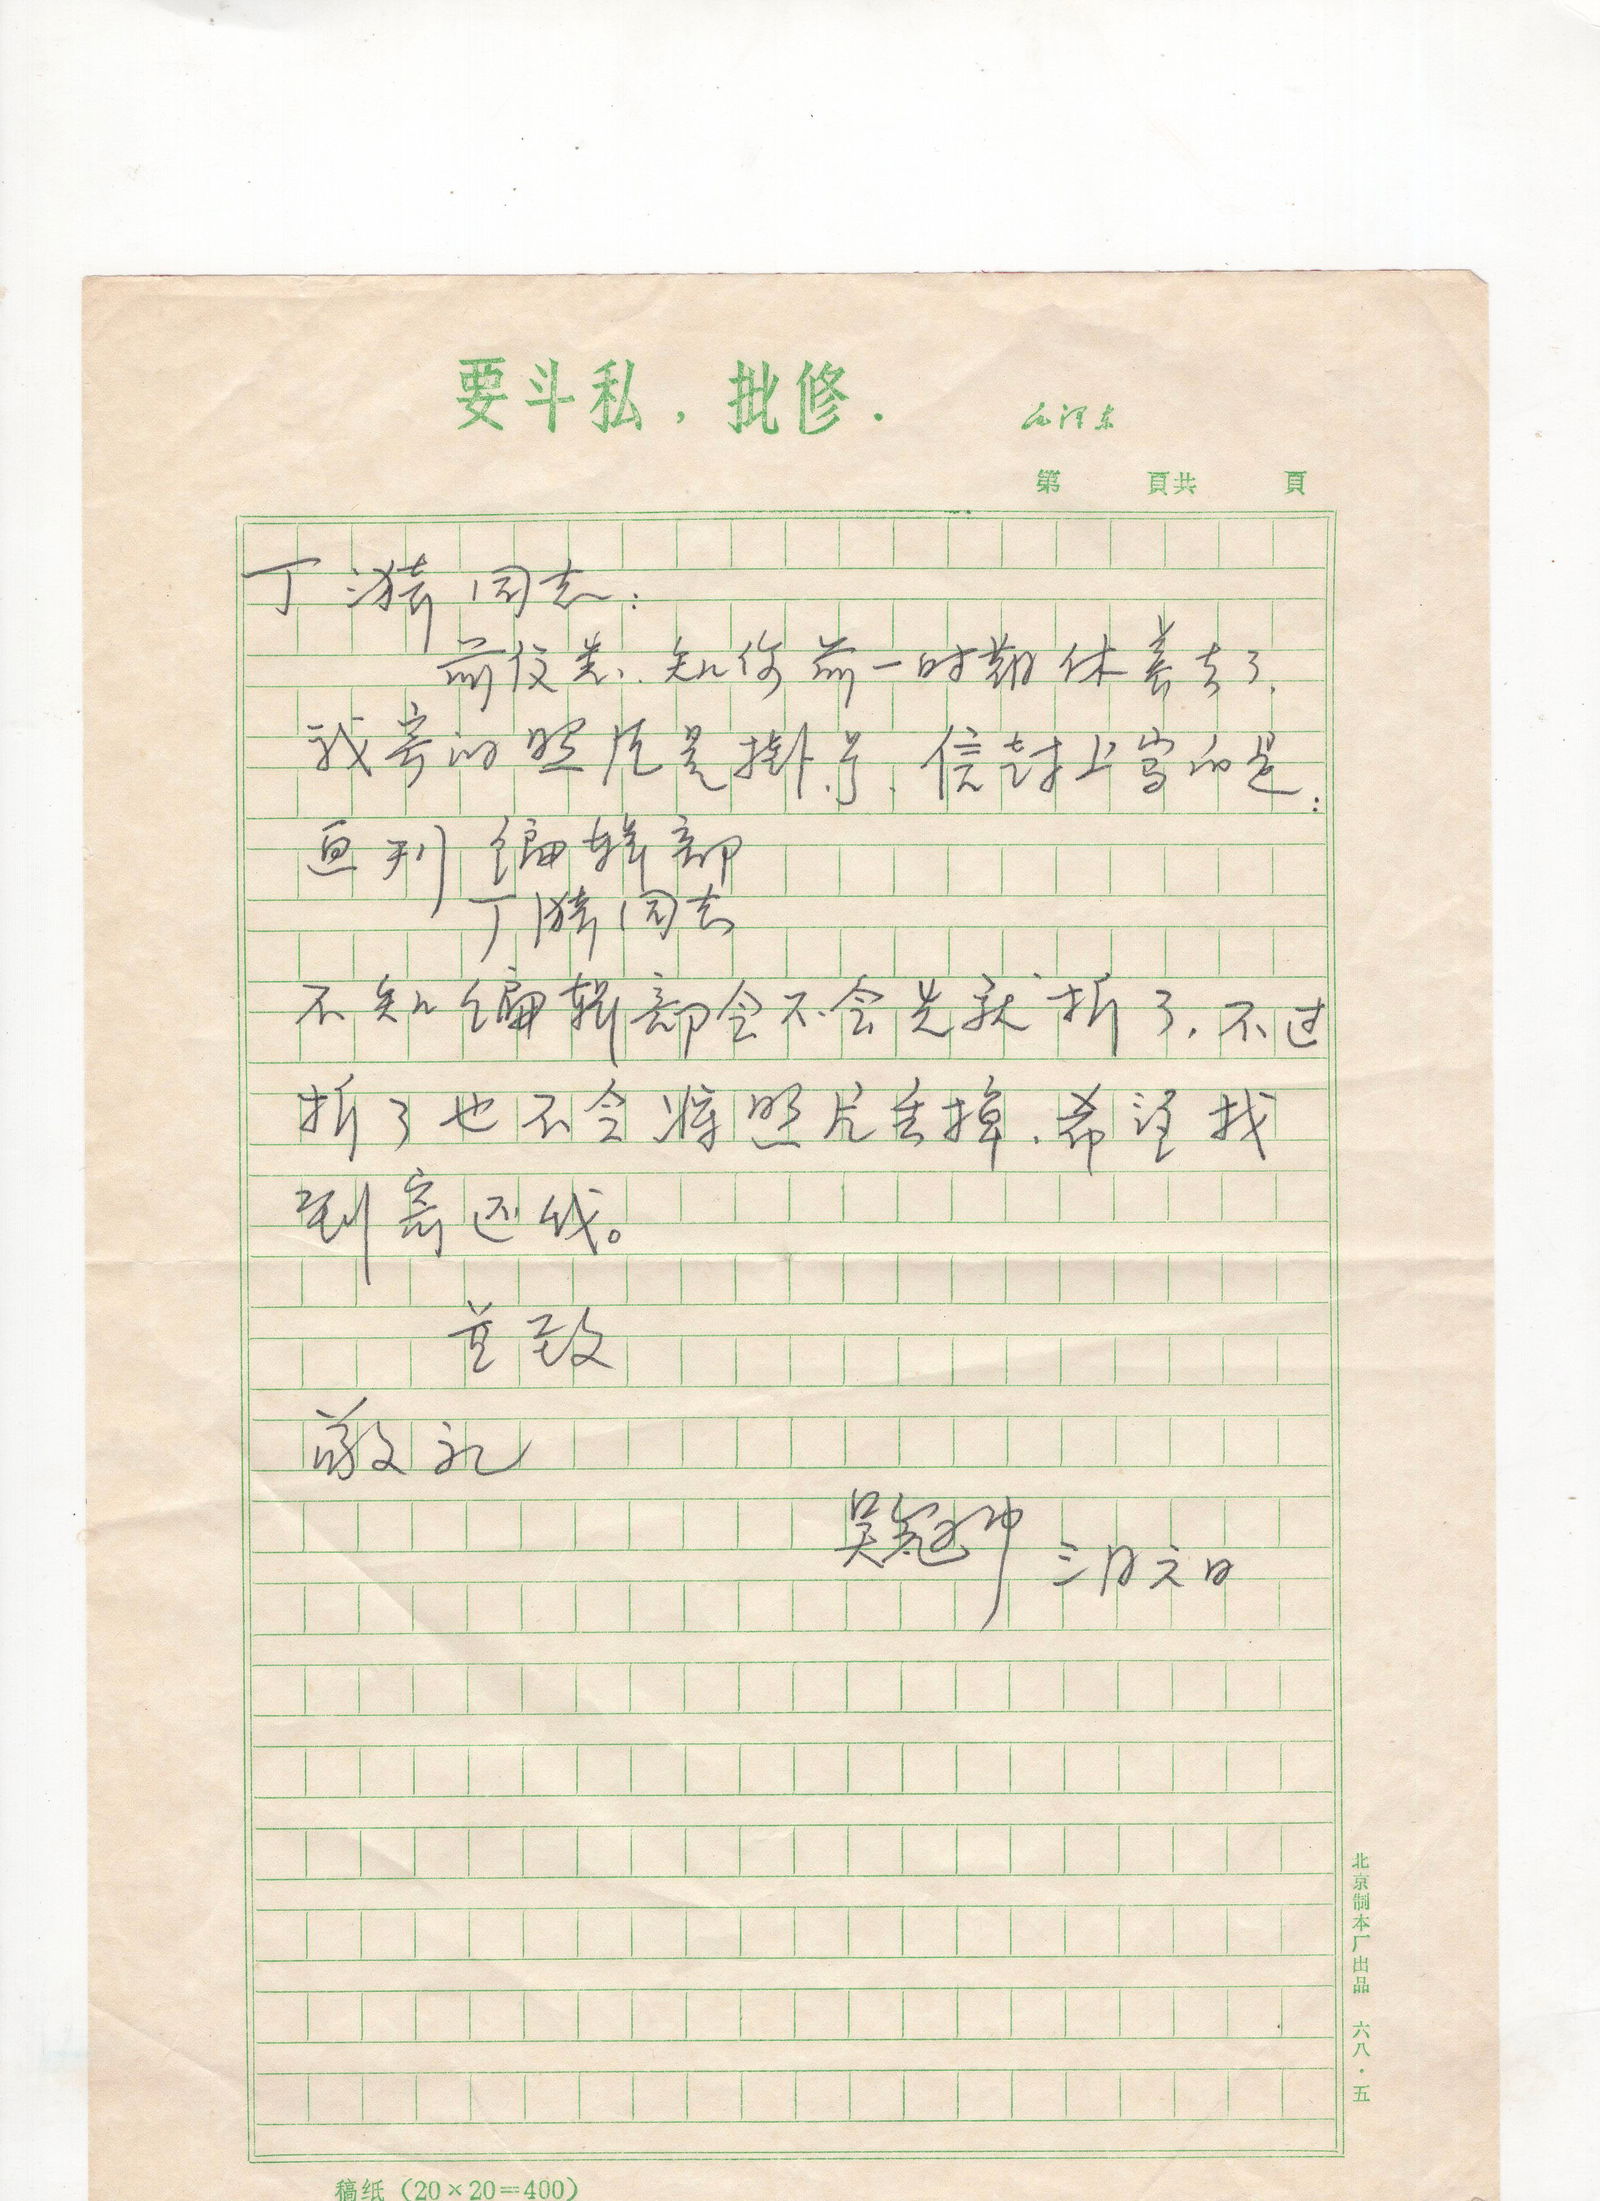 要斗私，批修.
毛泽东
第 頁共 頁
丁漪同志：
前信悉，知你前一时期休养去了，
我寄的照片是挂号，信封上写的是：
画刊 编辑部
丁漪同志
不知编辑部会不会先就拆了，不过
拆了也不会将照片丢掉，希望找
到寄还我。
并致
敬礼
吴冠中 三月六日
北京制本厂出品 六八·五
稿纸（20×20＝400）